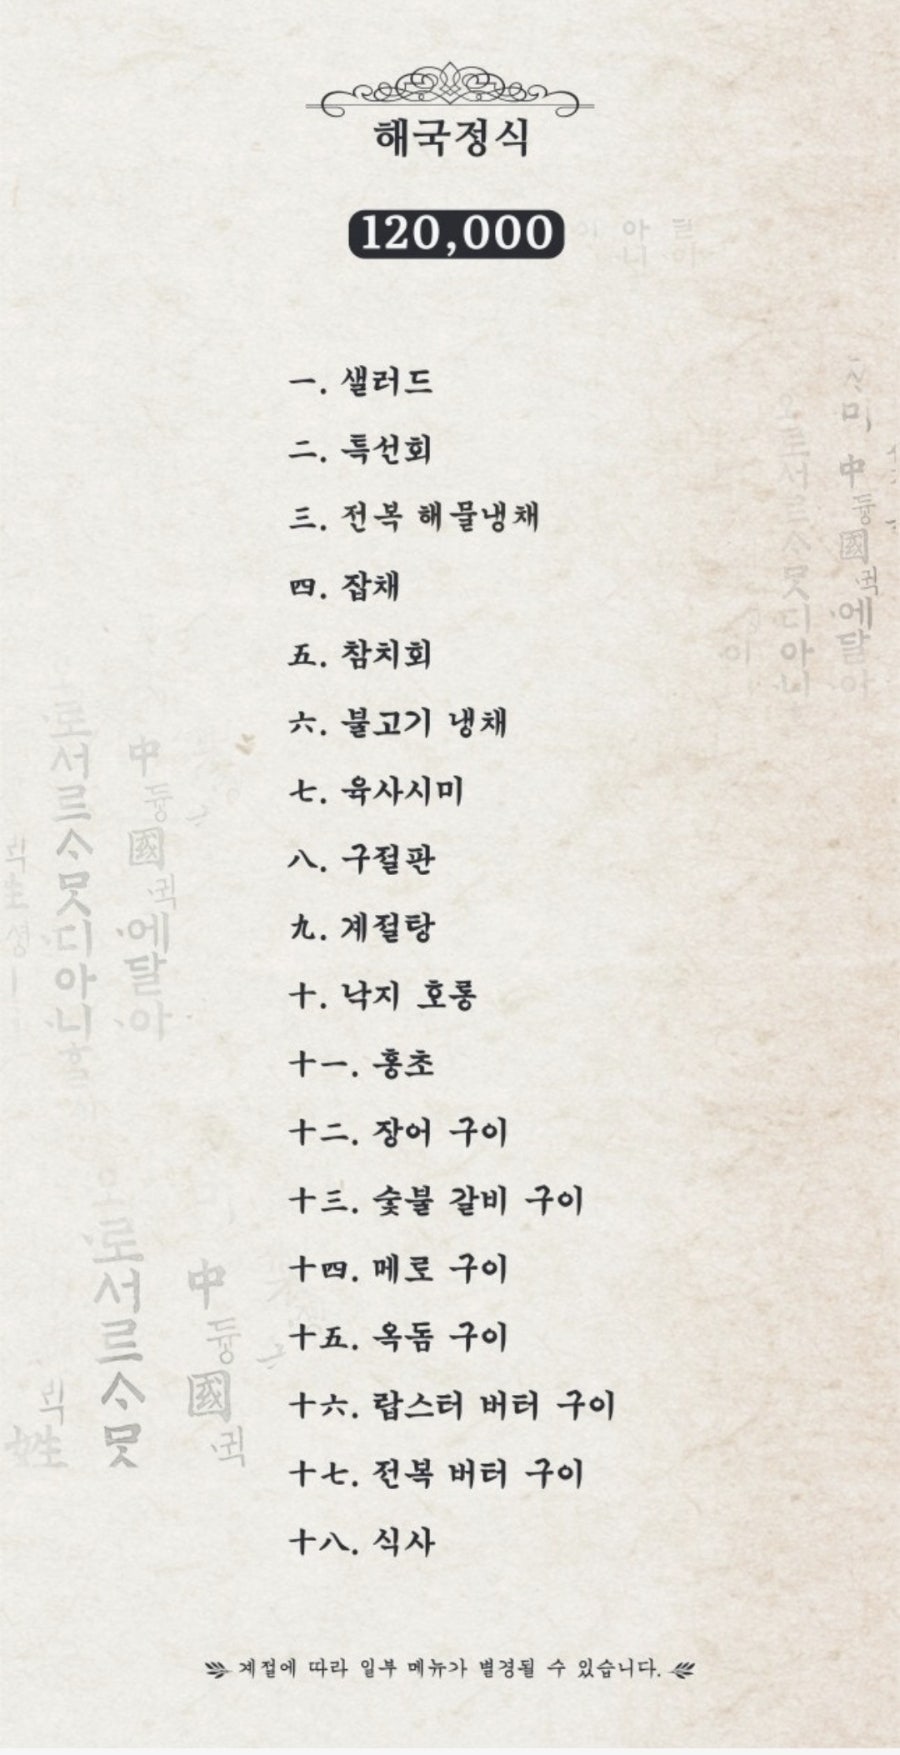 해국정식
120,000
一. 샐러드
二. 특선회
三. 전복 해물냉채
四. 잡채
五. 참치회
六. 불고기 냉채
七. 육사시미
八. 구절판
九. 계절탕
十. 낙지 호롱
十一. 홍초
十二. 장어 구이
十三. 숯불 갈비 구이
十四. 메로 구이
十五. 옥돔 구이
十六. 랍스터 버터 구이
十七. 전복 버터 구이
十八. 식사
계절에 따라 일부 메뉴가 변경될 수 있습니다.